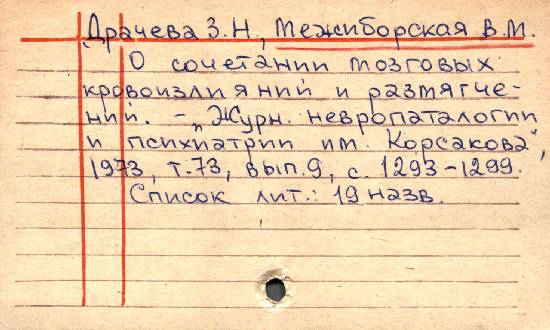 Драчева З.Н., Межиборская В.М.
О сочетании мозговых
кровоизлияний и размягче-
ний. – „Журн. невропаталогии
и психиатрии им. Корсакова",
1973, т.73, вып.9, с. 1293-1299.
Список лит.: 19 назв.